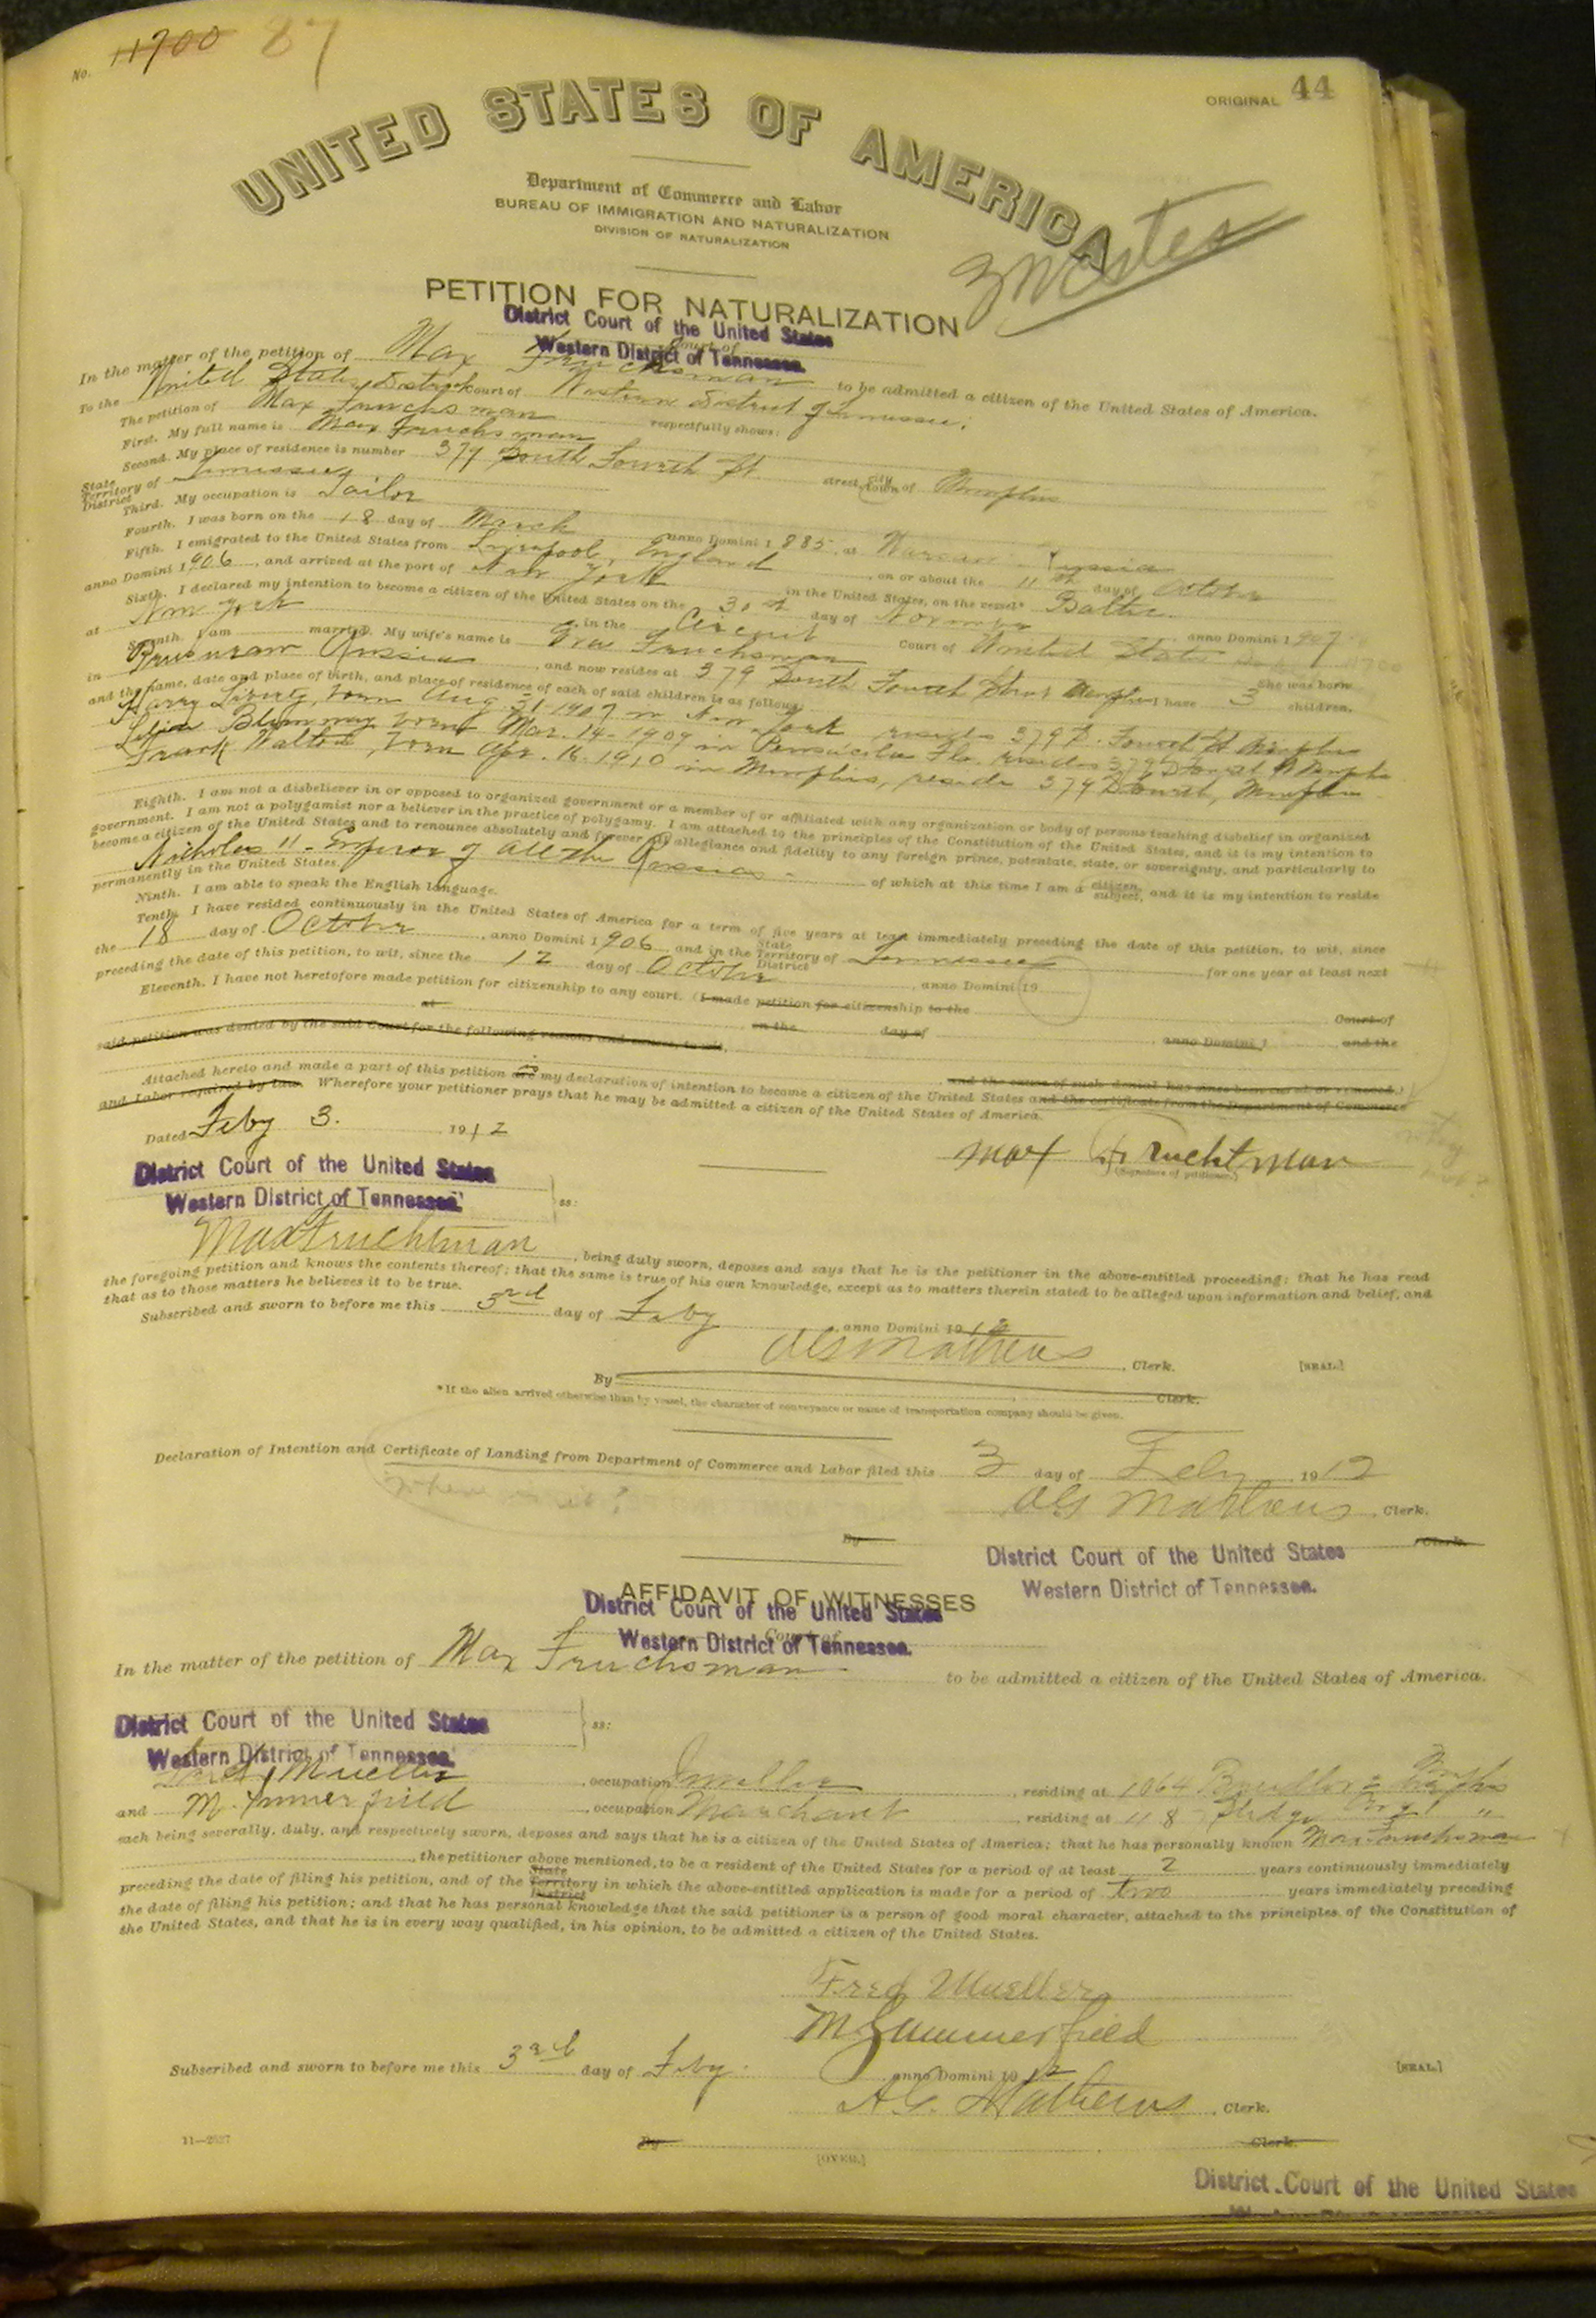 No. 11700 87
ORIGINAL 44
UNITED STATES OF AMERICA
Department of Commerce and Labor
BUREAU OF IMMIGRATION AND NATURALIZATION
DIVISION OF NATURALIZATION
PETITION FOR NATURALIZATION
District Court of the United States
Court of
Western District of Tennessee.
In the matter of the petition of Max Fruchsman to be admitted a citizen of the United States of America.
To the United States District Court of Western District Tennessee:
The petition of Max Fruchsman respectfully shows:
First. My full name is Max Fruchsman
Second. My place of residence is number 379 South Fourth St. street, city town of Memphis
State Territory District of Tennessee
Third. My occupation is Tailor
Fourth. I was born on the 18 day of March anno Domini 1885, at Warsaw Russia
Fifth. I emigrated to the United States from Liverpool, England, on or about the 11th day of October
anno Domini 1906, and arrived at the port of New York in the United States, on the vessel* Baltic.
Sixth. I declared my intention to become a citizen of the United States on the 30th day of anno Domini 1907
at New York, in the Circuit Court of United States
Seventh. I am married. My wife's name is Fruchsman She was born
in Russia, and now resides at 379 South Fourth Street Memphis I have 3 children,
and the name, date and place of birth, and place of residence of each of said children is as follows:
Harry born Aug 31 1907 in New York resides 379 S. Fourth St Memphis
born Mar. 14 - 1909 in Pensacola Fla. resides 379 S Fourth St Memphis
Frank Walton, born Apr. 16. 1910 in Memphis, reside 379 S Fourth, Memphis
Eighth. I am not a disbeliever in or opposed to organized government or a member of or affiliated with any organization or body of persons teaching disbelief in organized
government. I am not a polygamist nor a believer in the practice of polygamy. I am attached to the principles of the Constitution of the United States, and it is my intention to
become a citizen of the United States and to renounce absolutely and forever all allegiance and fidelity to any foreign prince, potentate, state, or sovereignty, and particularly to
Nicholas II - Emperor of All the Russias - of which at this time I am a citizen, subject, and it is my intention to reside
permanently in the United States.
Ninth. I am able to speak the English language.
Tenth. I have resided continuously in the United States of America for a term of five years at least immediately preceding the date of this petition, to wit, since
the 18 day of October, anno Domini 1906, and in the State Territory District of Tennessee for one year at least next
preceding the date of this petition, to wit, since the 12 day of October, anno Domini 19
Eleventh. I have not heretofore made petition for citizenship to any court. (I made petition for citizenship to the Court of
at on the day of, anno Domini 1 and the
said petition was denied by the said Court for the following reasons and causes, to wit,
and the cause of such denial has since been cured or removed.)
Attached hereto and made a part of this petition are my declaration of intention to become a citizen of the United States and the certificate from the Department of Commerce
and Labor required by law. Wherefore your petitioner prays that he may be admitted a citizen of the United States of America.
Dated Feby 3. 1912
Max Fruchtman
(Signature of petitioner.)
District Court of the United States
Western District of Tennessee.
ss:
Max Fruchtman, being duly sworn, deposes and says that he is the petitioner in the above-entitled proceeding; that he has read
the foregoing petition and knows the contents thereof; that the same is true of his own knowledge, except as to matters therein stated to be alleged upon information and belief, and
that as to those matters he believes it to be true.
Subscribed and sworn to before me this 3rd day of Feby anno Domini 1912
AG Mathews, Clerk. [SEAL.]
By Clerk.
*If the alien arrived otherwise than by vessel, the character of conveyance or name of transportation company should be given.
Declaration of Intention and Certificate of Landing from Department of Commerce and Labor filed this 3 day of Feby 1912
where is it?
AG Mathews, Clerk.
By Clerk.
District Court of the United States
Western District of Tennessee.
AFFIDAVIT OF WITNESSES
District Court of the United States
Court of
Western District of Tennessee.
In the matter of the petition of Max Fruchsman to be admitted a citizen of the United States of America.
District Court of the United States
Western District of Tennessee.
ss:
Fred Mueller, occupation Jeweller, residing at 1064 Memphis
and M. Summerfield, occupation Merchant, residing at 118
each being severally, duly, and respectively sworn, deposes and says that he is a citizen of the United States of America; that he has personally known Max Fruchsman
, the petitioner above mentioned, to be a resident of the United States for a period of at least 2 years continuously immediately
preceding the date of filing his petition, and of the State Territory District in which the above-entitled application is made for a period of two years immediately preceding
the date of filing his petition; and that he has personal knowledge that the said petitioner is a person of good moral character, attached to the principles of the Constitution of
the United States, and that he is in every way qualified, in his opinion, to be admitted a citizen of the United States.
Fred Mueller
M Summerfield
Subscribed and sworn to before me this 3rd day of Feby. anno Domini 1912 [SEAL.]
A.G. Mathews, Clerk.
By Clerk.
11—2527
[OVER.]
District Court of the United States